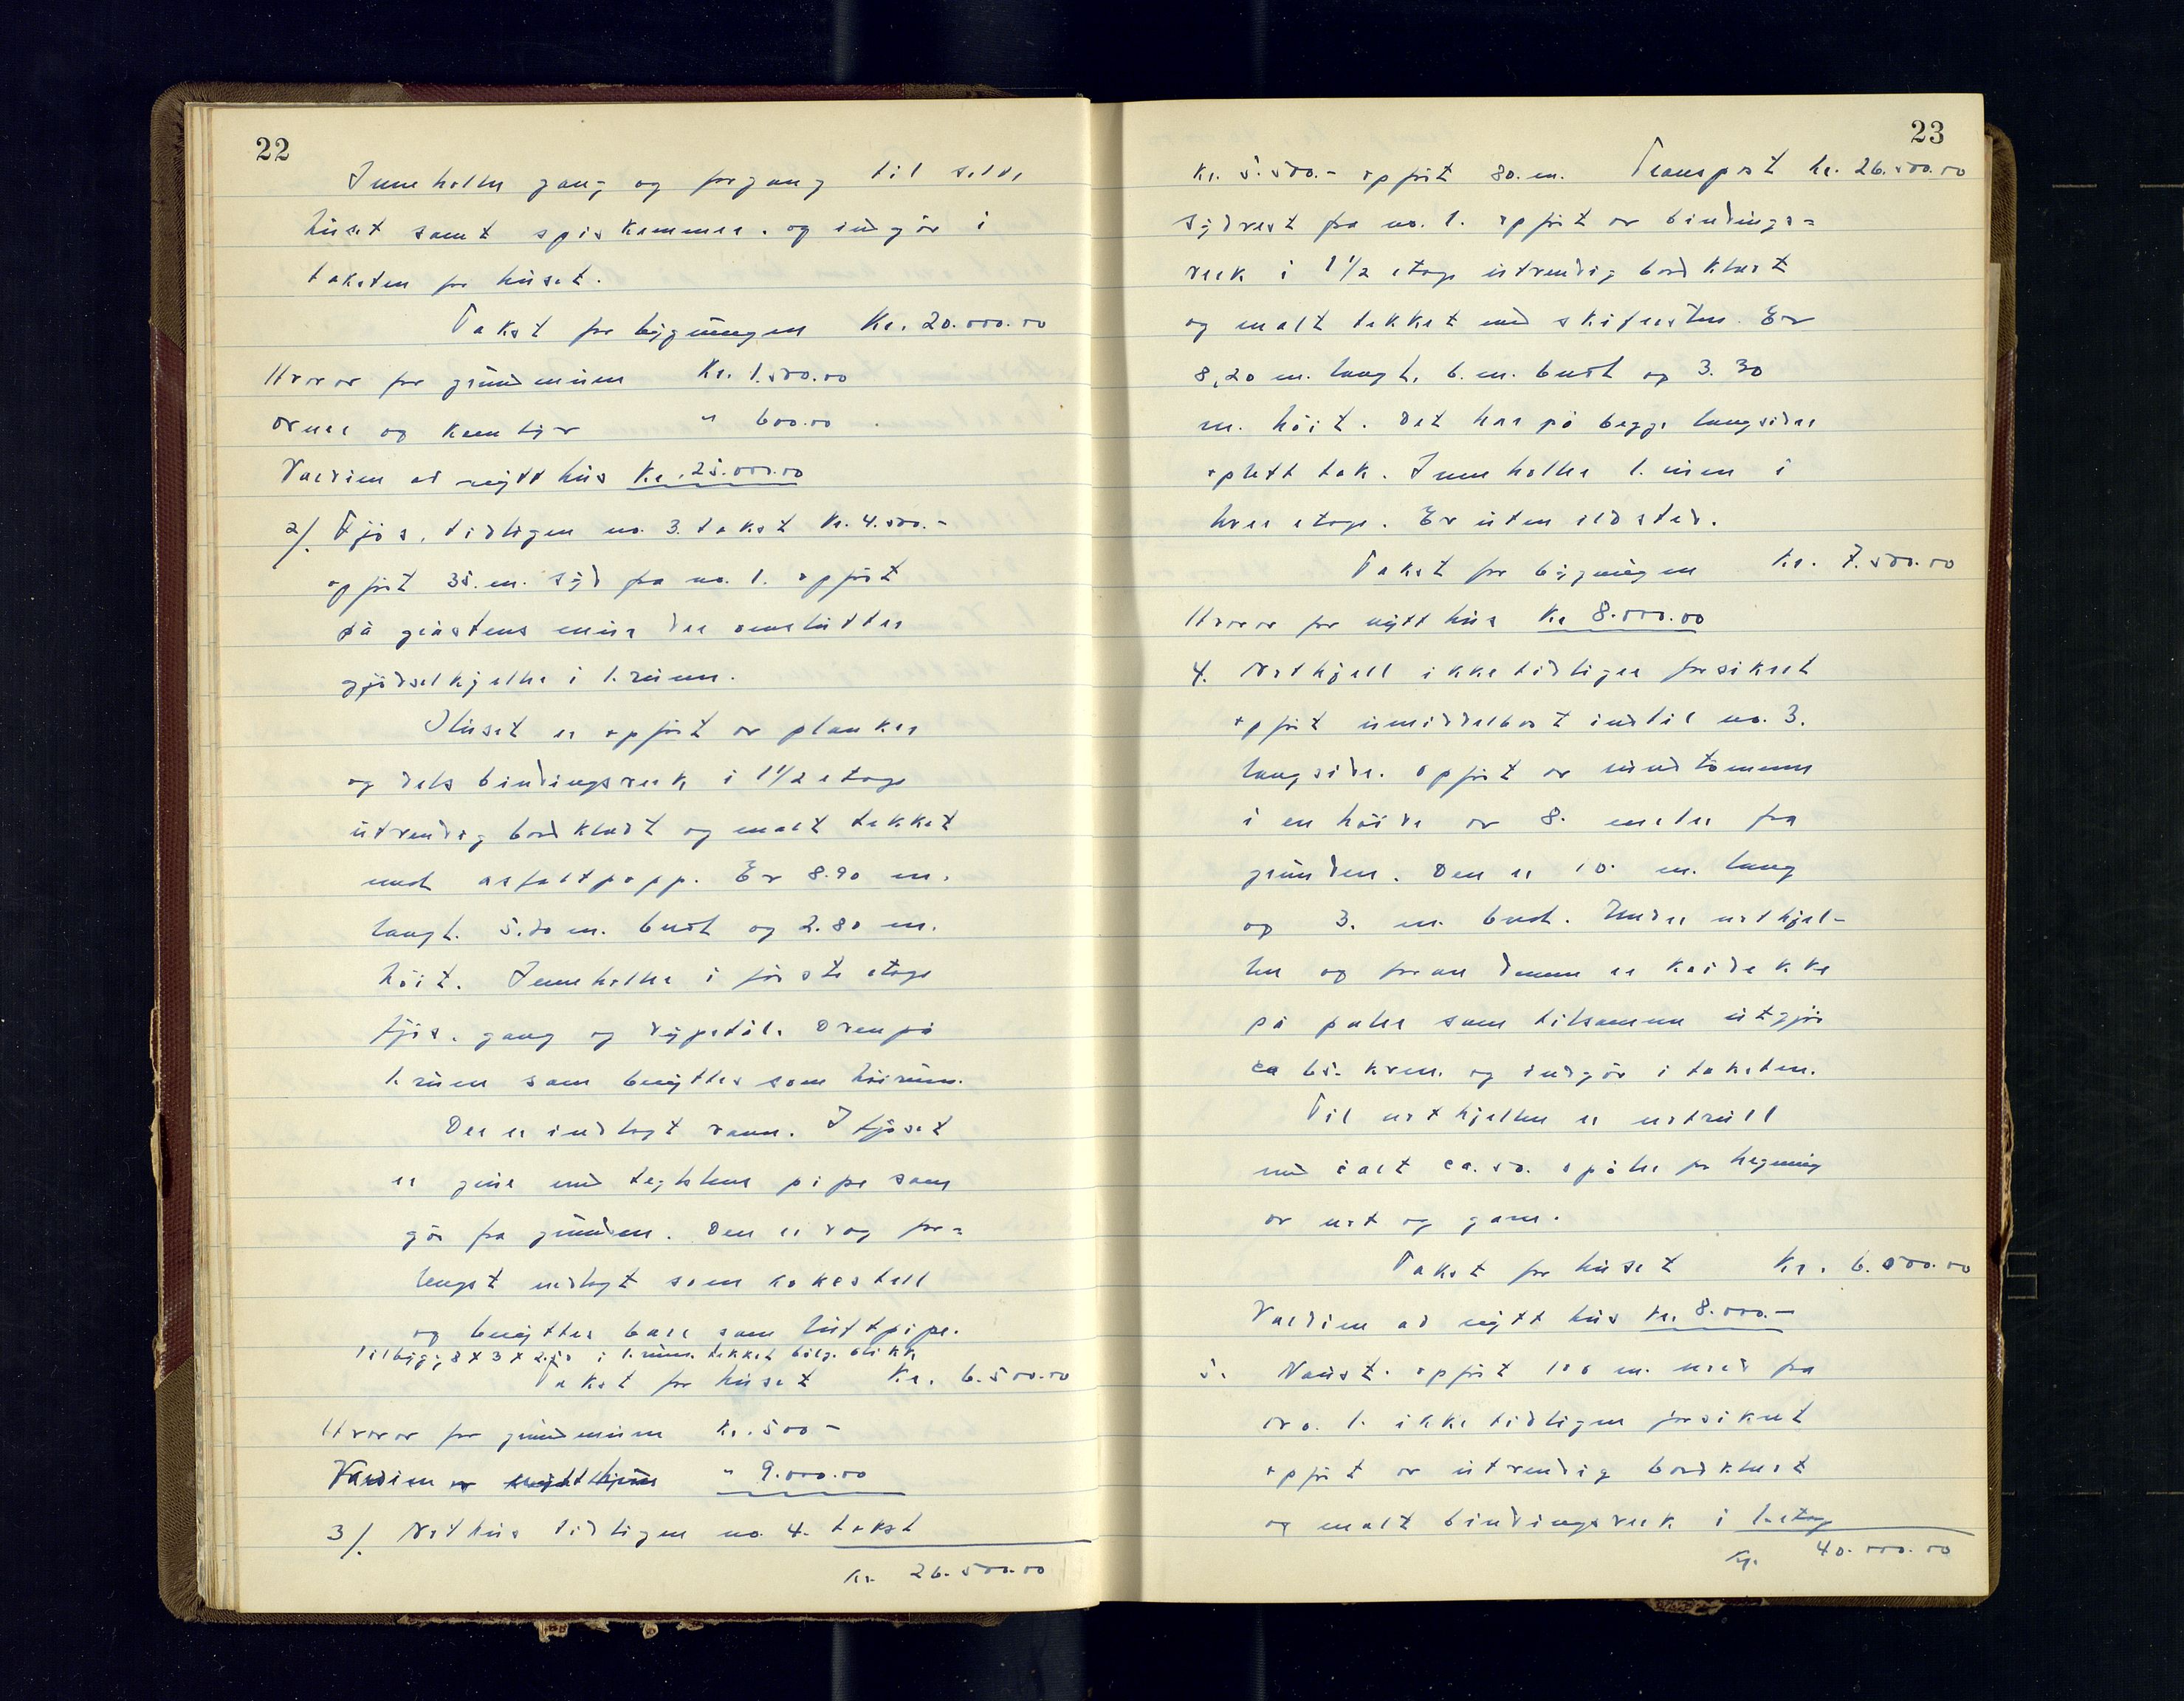 22
Inneholder gang og forgang til selve
huset samt spiskammer. og indgår i
taksten for huset.
Takst for bygningen Kr. 20.000.00
Hvorav for grundmuren Kr. 1.500.00
ovner og komfyr " 600.00
Verdien ad nytt hus Kr. 25.000.00
2/. Fjøs, tidligere no. 3. takst Kr. 4.500.-
opført 35. m. syd fra no. 1. opført
på gråstens mur der omslutter
gjødselkjeller i 1. rum.
Huset er opført av planker
og dels bindingsverk i 1 1/2 etage
utvendig bordklædt og malt tekket
med asfaltpapp. Er 8.90 m.
langt. 5.50 m. bredt og 2.80 m.
høit. Inneholder i første etage
fjøs, gang og Ovenpå
1. rum som benyttes som høirum.
Der er indlagt vann. I fjøset
er grue med teglstens pipe som
går fra grunden. Den er dog for=
lengst nedlagt som kokested
og benyttes bare som luftpipe.
Tilbygg 8 x 3 x 2.50 i 1. rum. tekket bølg. blikk
Takst for huset Kr. 6.500.00
Hvorav for grundmuren Kr. 500 -
Verdien av nytt hus " 9.000.00
3/. Nothus tidligere no. 4. takst
Kr. 26.500.00
23
Kr. 5.500.- opført 80. m. Transport kr. 26.500.00
sydvest fra no. 1. opført av bindings=
verk i 1 1/2 etage utvendig bordklædt
og malt tekket med skifersten. Er
8,20 m. langt, 6. m. bredt og 3.30
m. høit. Det har på begge langsider
oplett tak. Inneholder 1. rum i
hver etage. Er uten ildsted.
Takst for bygningen Kr. 7.500.00
Hvorav for nytt hus Kr 8.000.00
4. Nothjell ikke tidligere forsikret
opført umiddelbart indtil no. 3.
langside. Opført av rundtømmer
i en høide av 8. meter fra
grunden. Den er 10. m. lang
og 3. m. bred. Under nothjel-
len og foran denne er kaidekke
på pæler som tilsammen utgjør
ca 65. kvm. og indgår i taksten.
Til nothjellen er notrull
med ialt ca. 50. spiler for hegning
av not og garn.
Takst for huset Kr. 6.000.00
Verdien ad nytt hus Kr. 8.000.-
5. Naust. opført 100 m. nord fra
no. 1. ikke tidligere forsikret
opført av utvendig bordklædt
og malt bindingsverk i 1. etage
Kr. 40.000.00